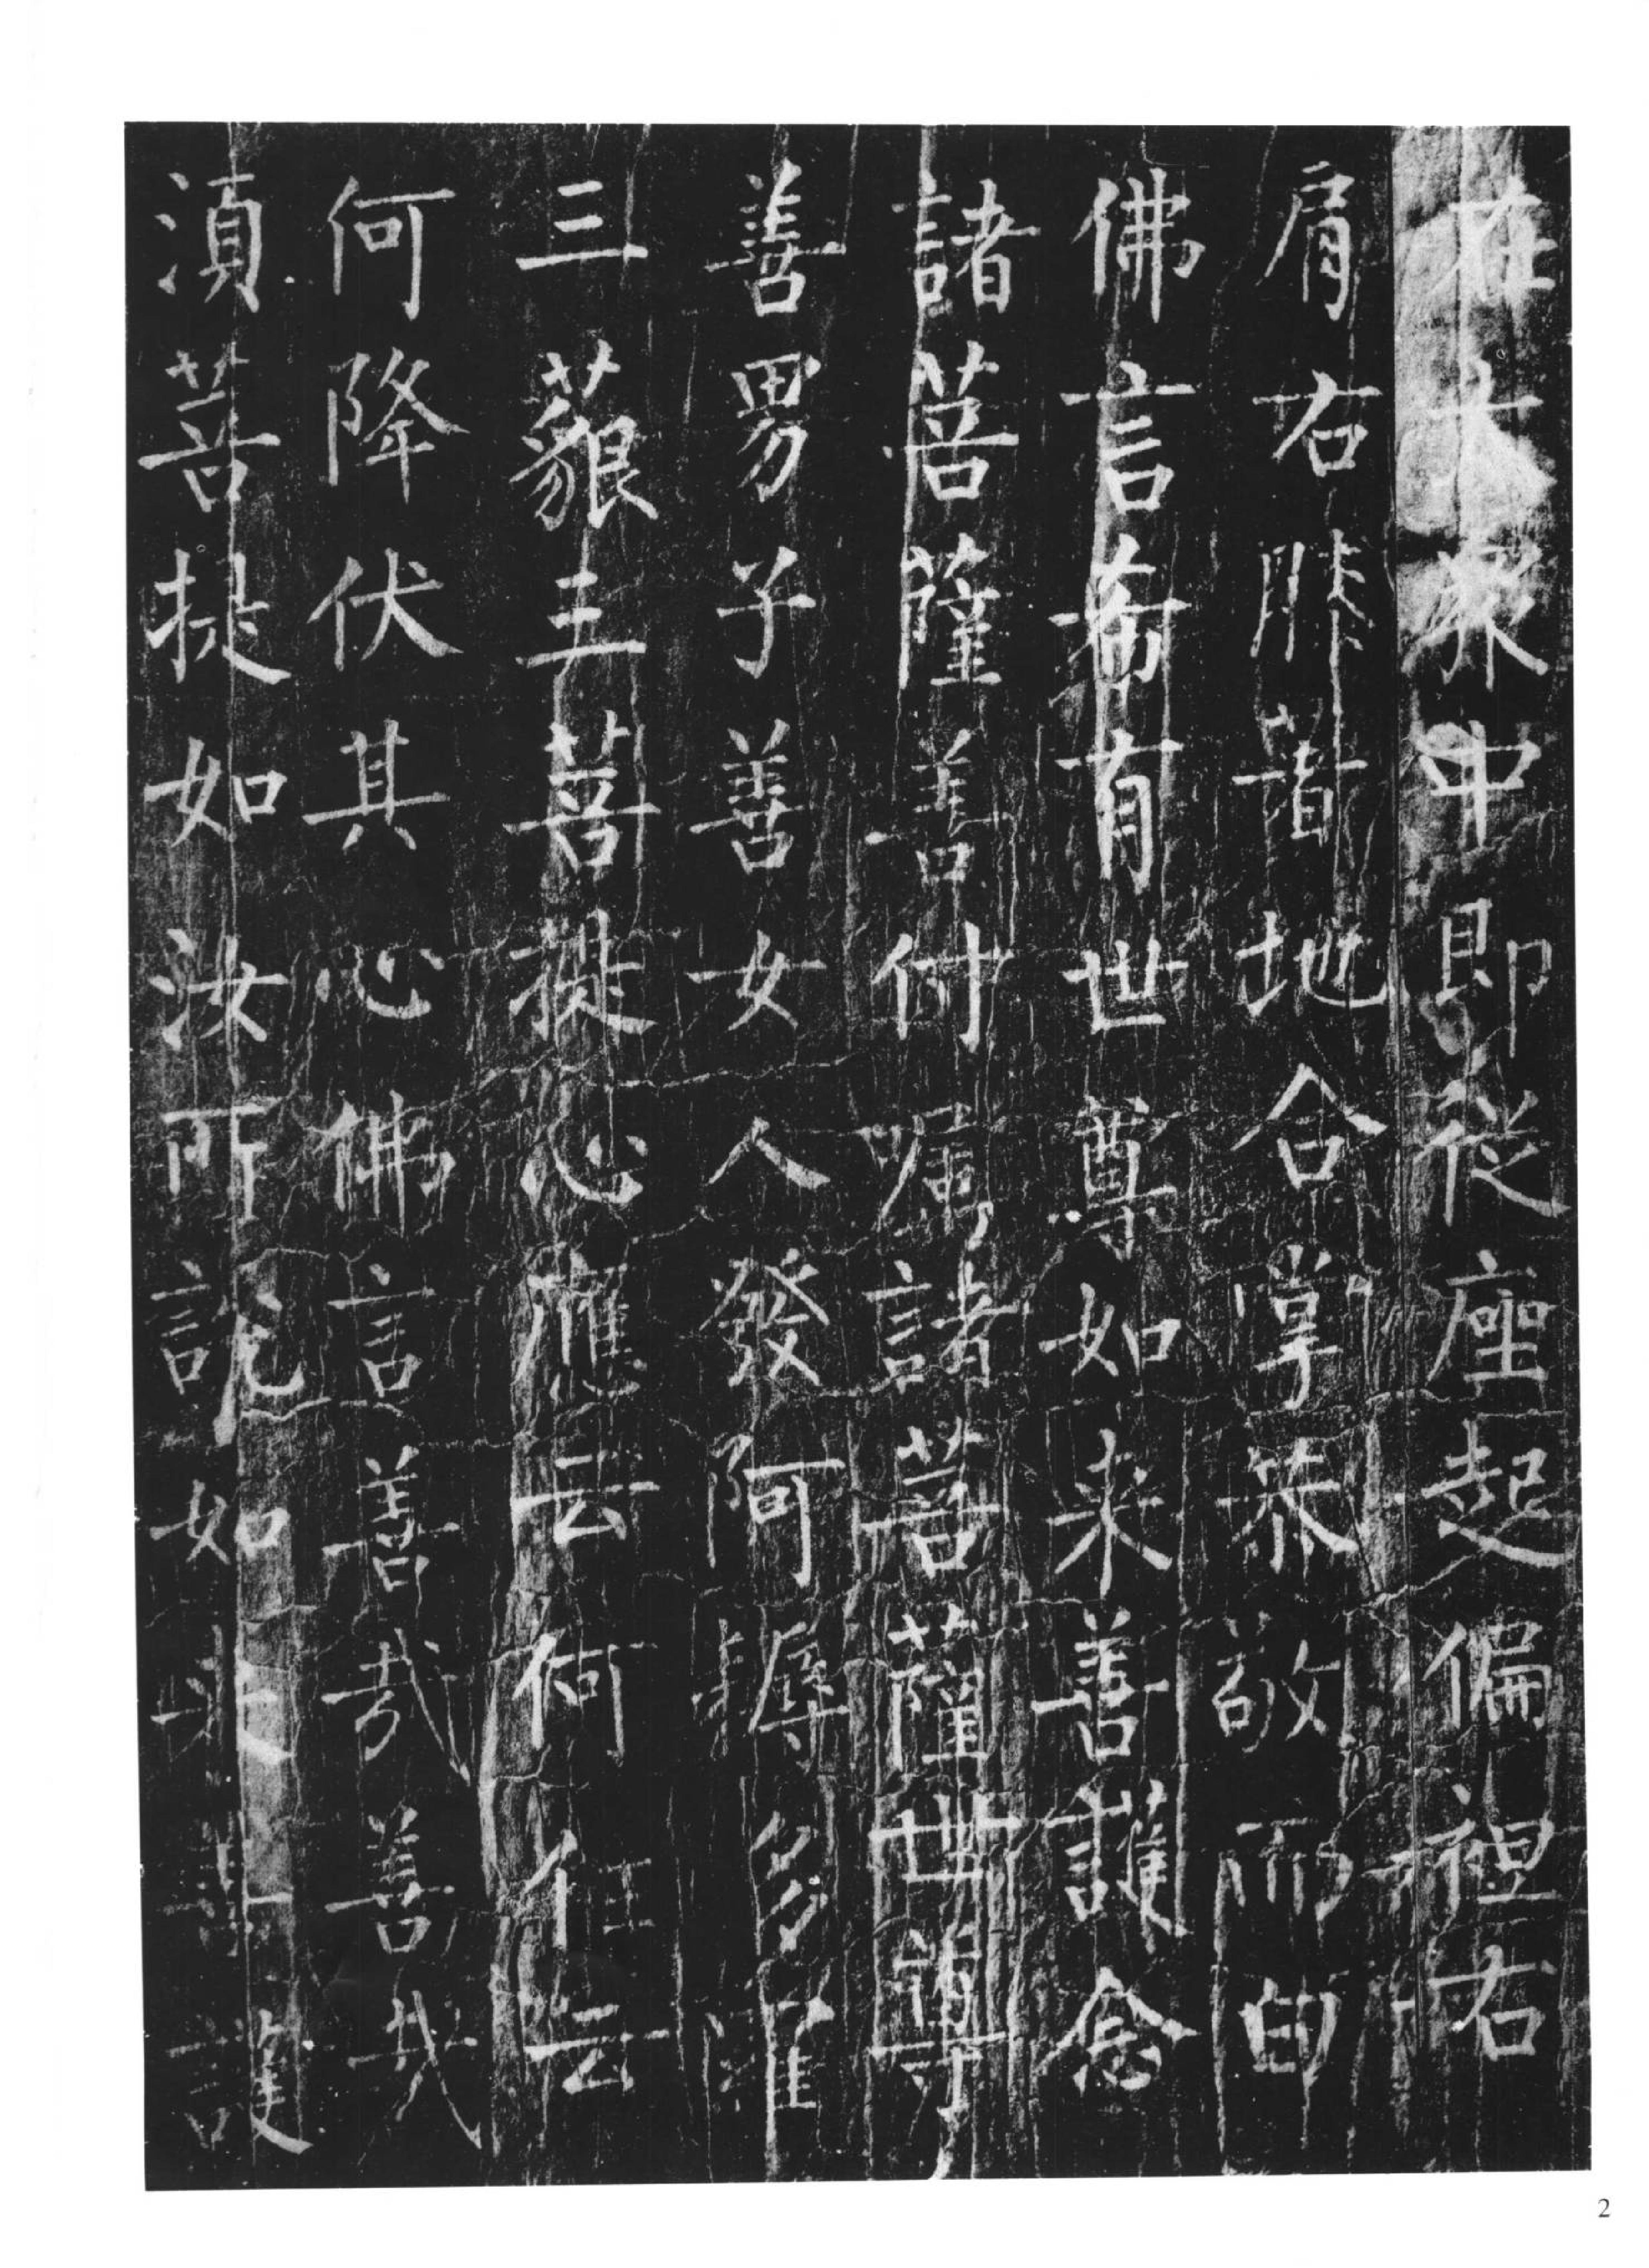 在大眾中即從座起偏袒右
肩右膝著地合掌恭敬而白
佛言希有世尊如來善護念
諸菩薩善付囑諸菩薩世尊
善男子善女人發阿耨多羅
三藐三菩提心應云何住云
何降伏其心佛言善哉善哉
須菩提如汝所說如來善護
2